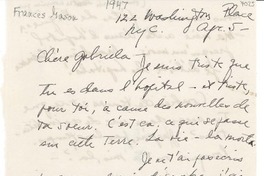 Frances Mason
1947
122 Washington Place
N.Y.C. Apr. 5 -
Chère Gabriela Je suis triste que
tu es dans l'hôpital - et triste,
pour toi, à cause des nouvelles de
ta soeur. C'est ça, ce qui se passe
sur cette Terre. La vie - la mort.
Je n'ai